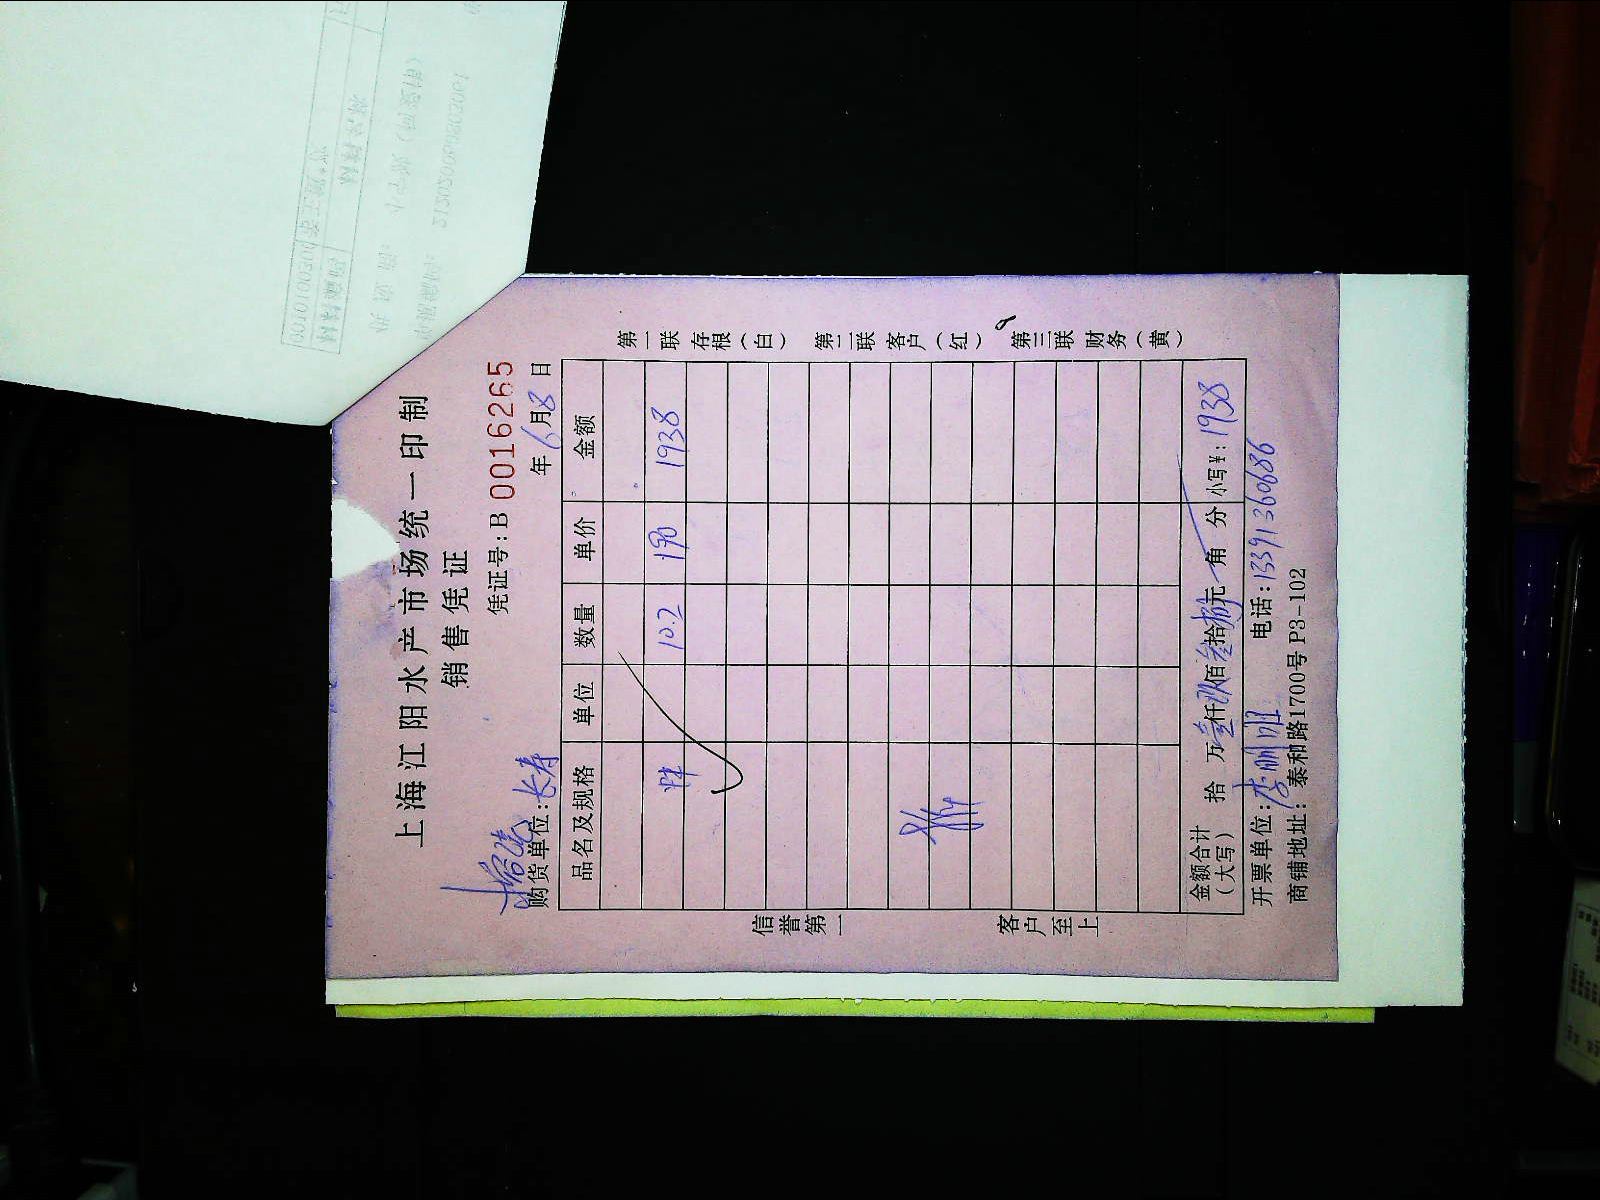 上海江阳水产市场统一印制
销售凭证
凭证号:B 0016265
购货单位:长寿
年6月8日
品名及规格 单位 数量 单价 金额
10.2 190 1938
金额合计(大写) 拾 万壹仟玖佰叁拾捌元 角 分 小写¥:1938
开票单位: 电话:13391360686
商铺地址:泰和路1700号P3-102
信誉第一 客户至上
第一联 存根(白) 第二联 客户(红) 第三联 财务(黄)